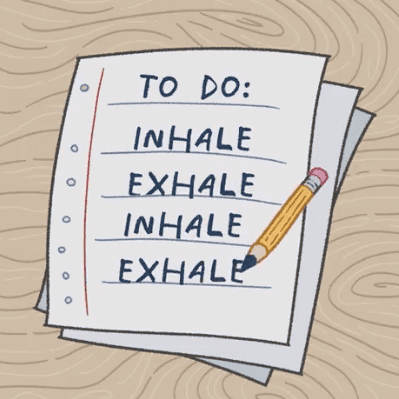 TO DO:
INHALE
EXHALE
INHALE
EXHALE